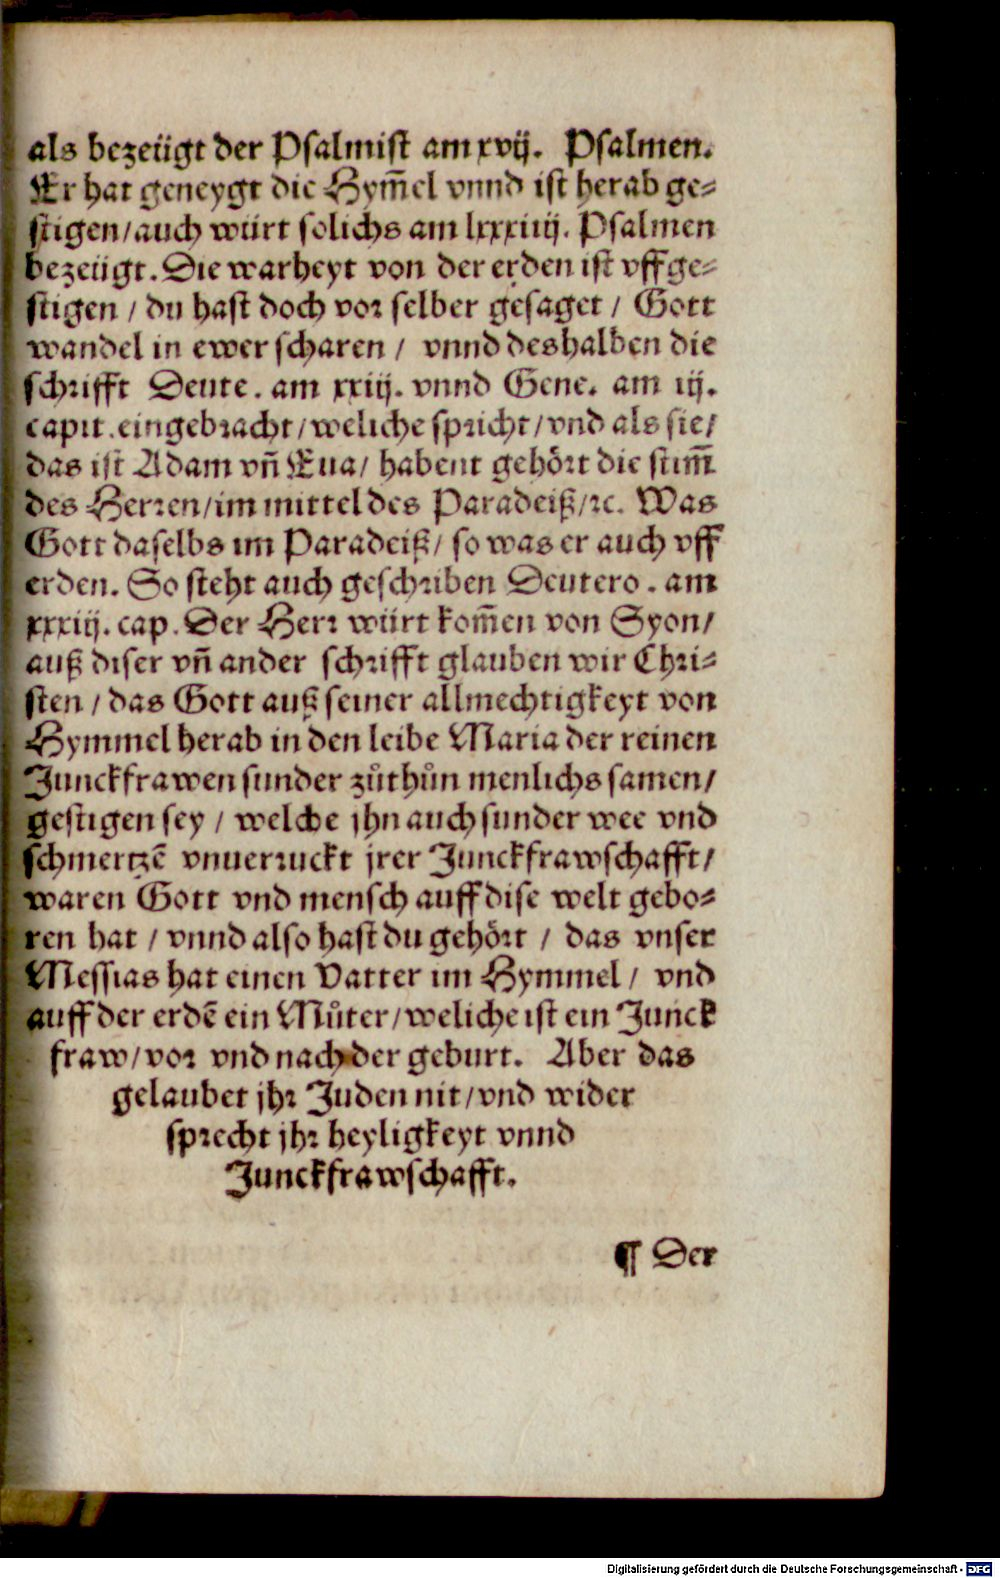 als bezeügt der Psalmist am xvij. Psalmen.
Er hat geneygt die Hym̃el vnnd ist herab ge⸗
stigen/auch würt solichs am lxxxiiij. Psalmen
bezeügt. Die warheyt von der erden ist vffge⸗
stigen / du hast doch vor selber gesaget / Gott
wandel in ewer scharen / vnnd deshalben die
schrifft Deute. am xxiij. vnnd Gene. am iij.
capit. eingebracht/weliche spricht/vnd als sie/
das ist Adam vñ Eua/ habent gehört die stim̃
des Herren/im mittel des Paradeiß/ꝛc. Was
Gott daselbs im Paradeiß/ so was er auch vff
erden. So steht auch geschriben Deutero. am
xxxiij. cap. Der Herr würt kom̃en von Syon/
auß diser vñ ander schrifft glauben wir Chri⸗
sten / das Gott auß seiner allmechtigkeyt von
Hymmel herab in den leibe Maria der reinen
Junckfrawen sunder zůthůn menlichs samen/
gestigen sey / welche jhn auch sunder wee vnd
schmertzē vnuerruckt jrer Junckfrawschafft/
waren Gott vnd mensch auff dise welt gebo⸗
ren hat / vnnd also hast du gehört / das vnser
Messias hat einen Vatter im Hymmel / vnd
auff der erdē ein Můter/weliche ist ein Junck
fraw/vor vnd nach der geburt. Aber das
gelaubet jhr Juden nit/vnd wider
sprecht jhr heyligkeyt vnnd
Junckfrawschafft.
¶ Der
Digitalisierung gefördert durch die Deutsche Forschungsgemeinschaft - DFG